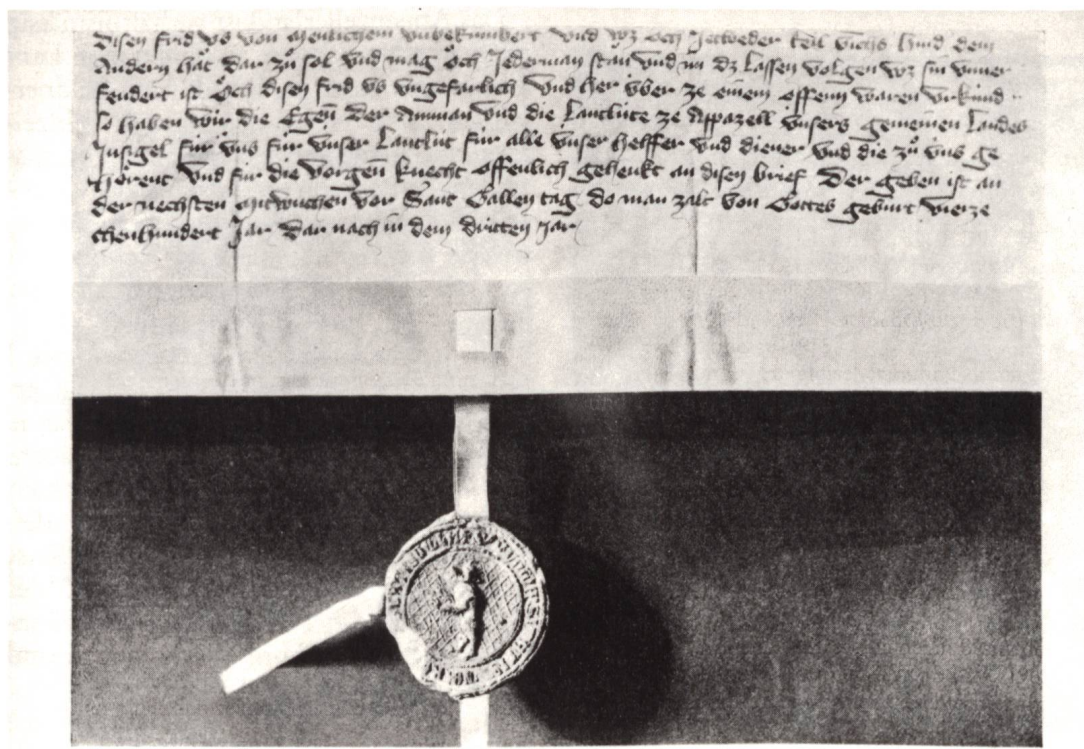 disen frid vs von menlichem vnbekumbert vnd wz och Jettweder teil vichs hind dem
Andern hat dar zů sol vnd mag och Jederman stan vnd im dz lassen volgen wz sin vnuer
fendert ist och disen frid vs vngefarlich vnd her vber ze einem offenn waren vrkünd
so haben wir die Egen der Amman vnd die Lantlüte ze Appazell vnsers gemeinen Landes
Jnsigel für vns für vnser Lantlüt für alle vnser helffer vnd diener vnd die zů vns ge
hörent vnd für die vorgen knecht offenlich gehenkt an disen brief Der geben ist an
der nechsten mitwuchen vor Sant Gallen tag do man zalt von Gottes geburt vierze
chenhundert Jar dar nach in dem dritten Jar